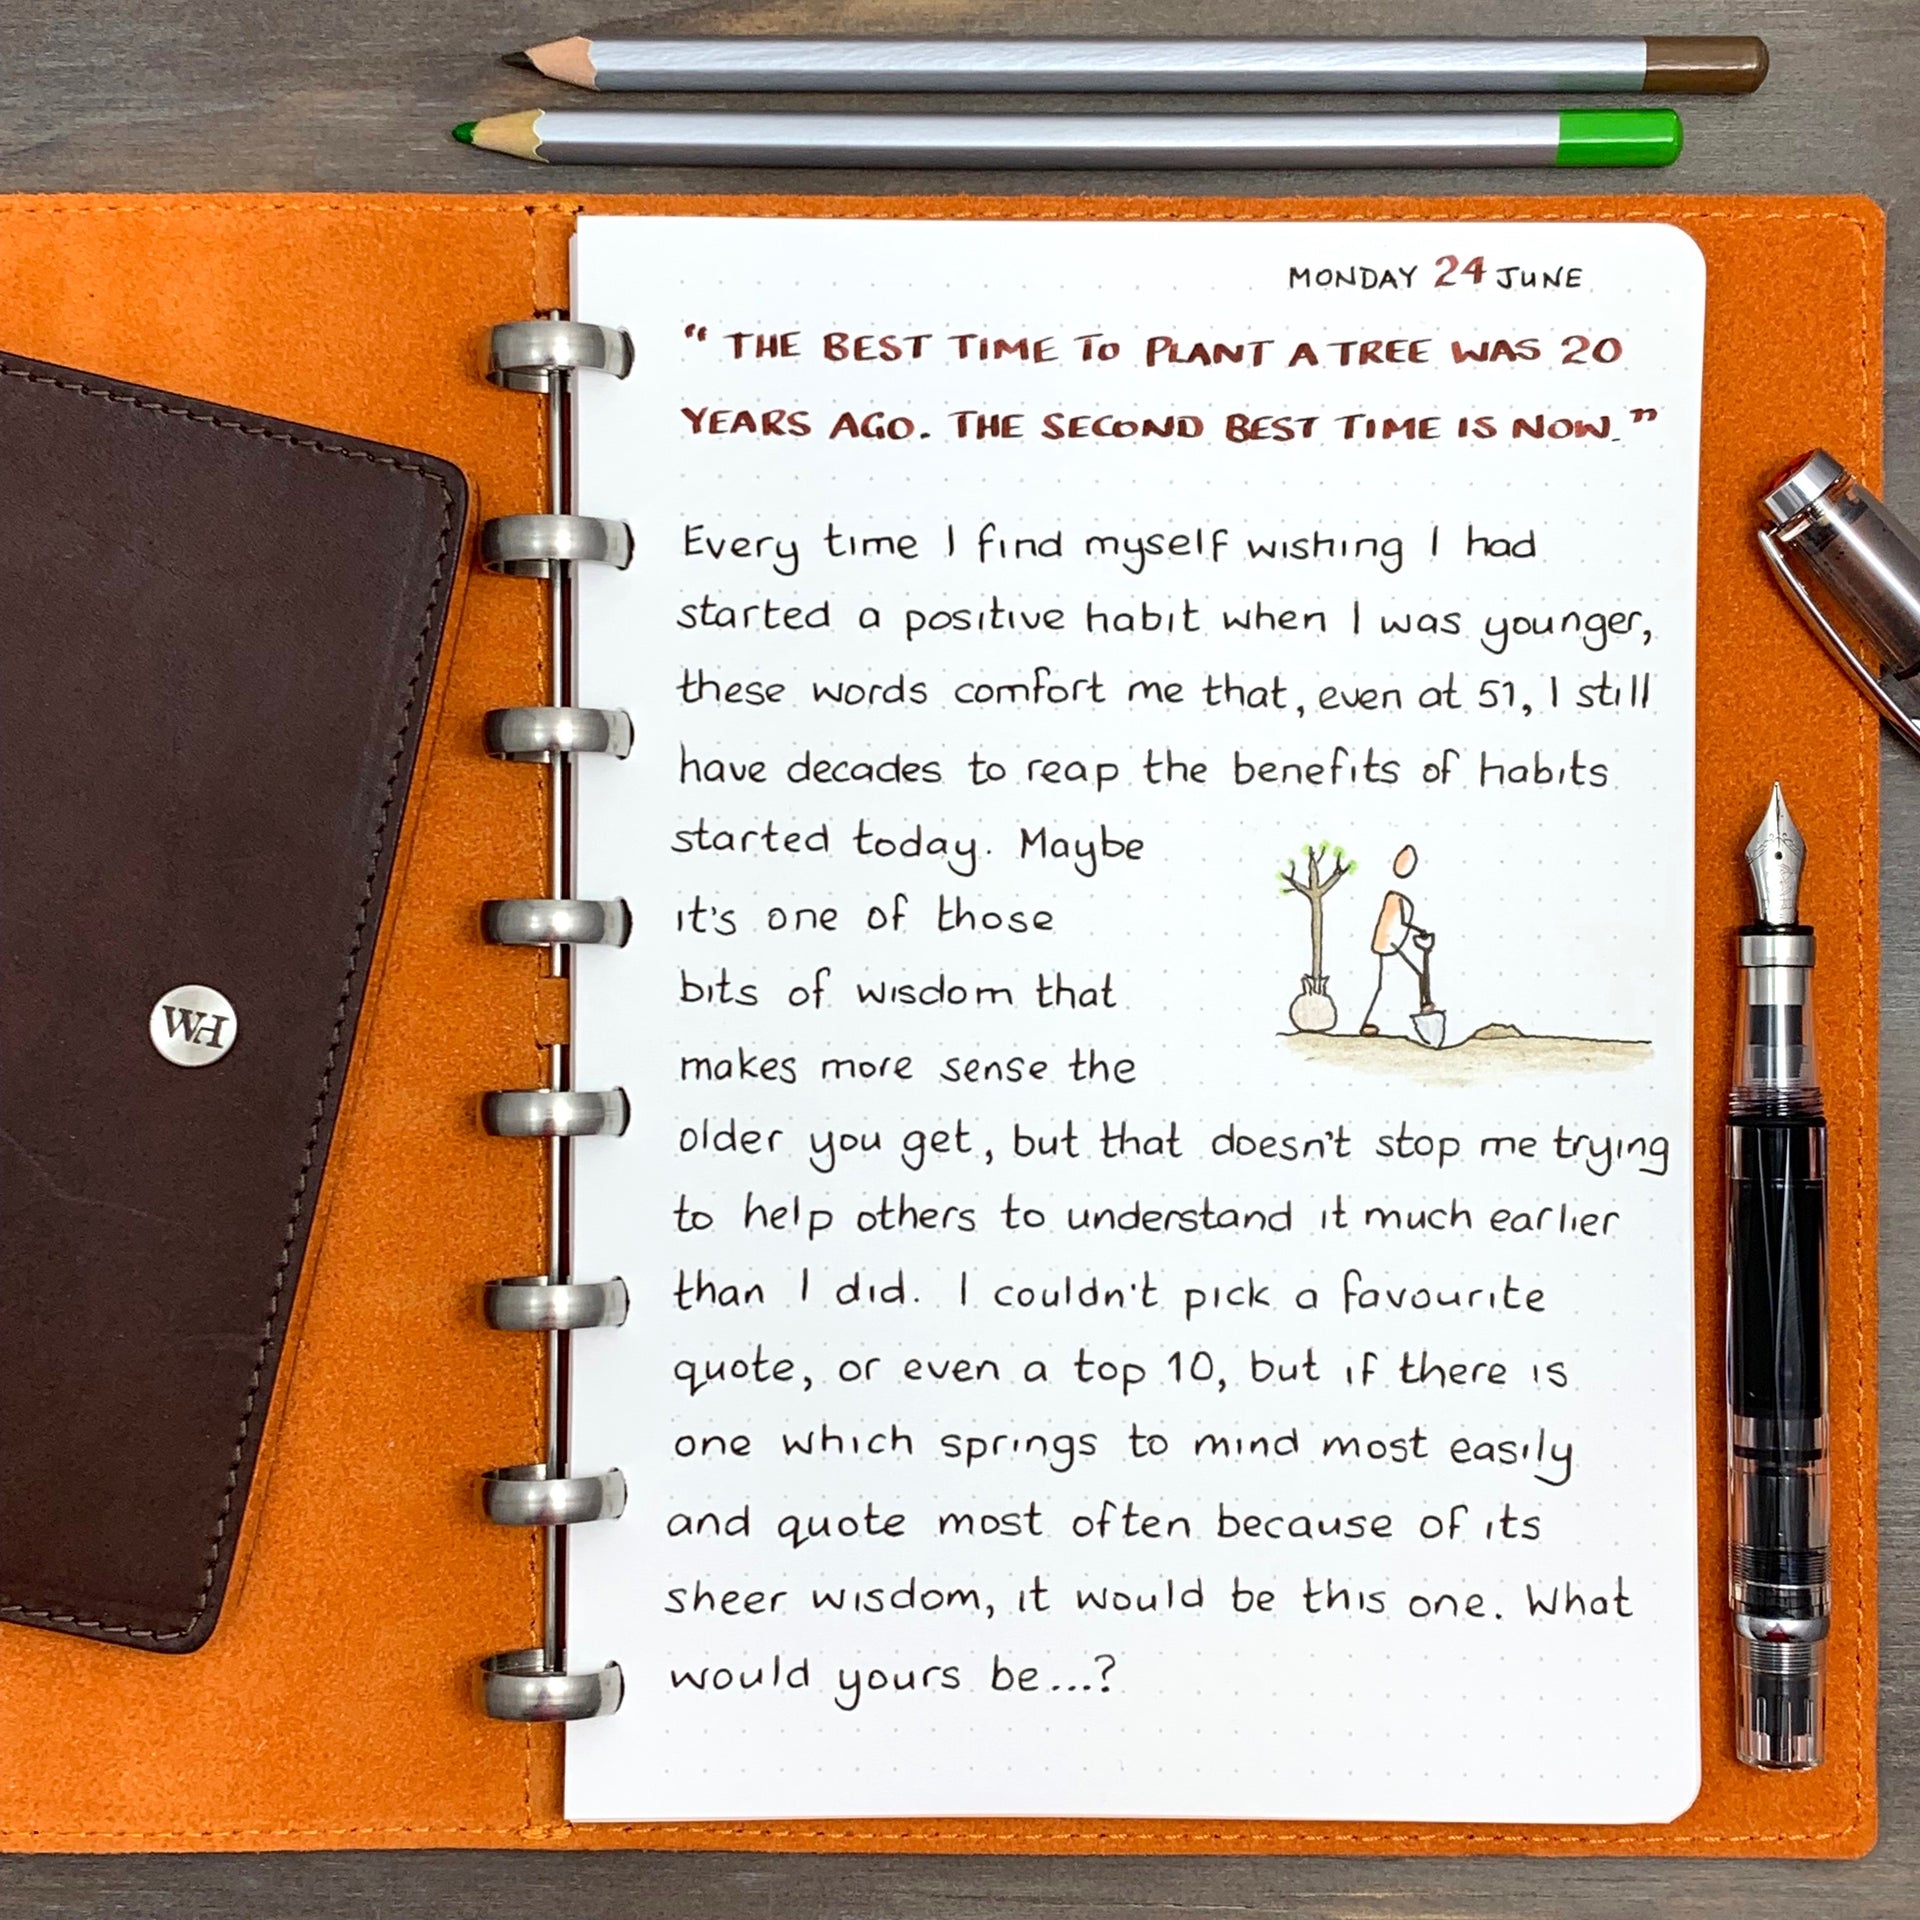 MONDAY 24 JUNE
“ THE BEST TIME TO PLANT A TREE WAS 20
YEARS AGO. THE SECOND BEST TIME IS NOW.”
Every time I find myself wishing I had
started a positive habit when I was younger,
these words comfort me that, even at 51, I still
have decades to reap the benefits of habits
started today. Maybe
it's one of those
bits of wisdom that
makes more sense the
older you get, but that doesn't stop me trying
to help others to understand it much earlier
than I did. I couldn't pick a favourite
quote, or even a top 10, but if there is
one which springs to mind most easily
and quote most often because of its
sheer wisdom, it would be this one. What
would yours be...?
WH